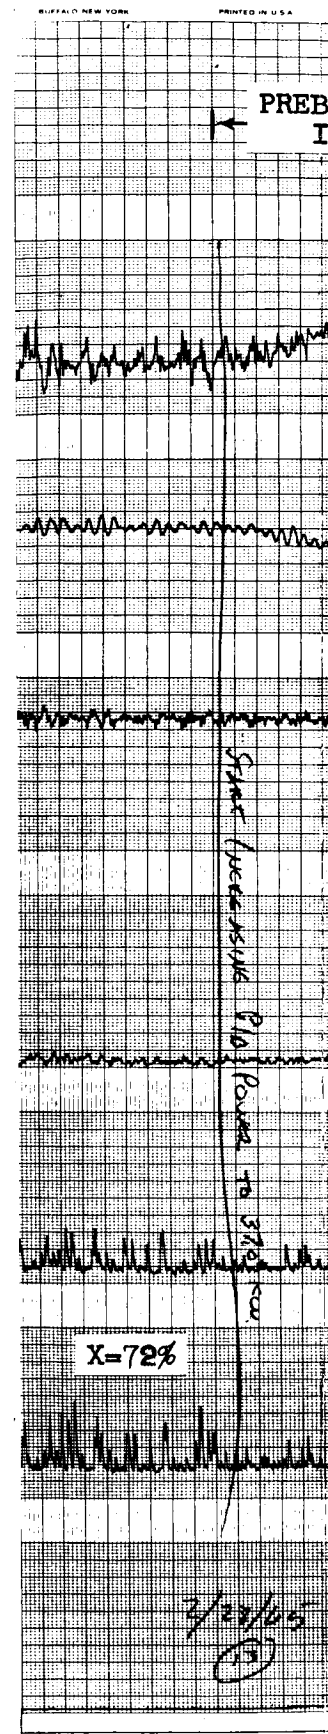 BUFFALO NEW YORK PRINTED IN U.S.A
PREB
I
START INCREASING P/D POWER TO 370 KW
X=72%